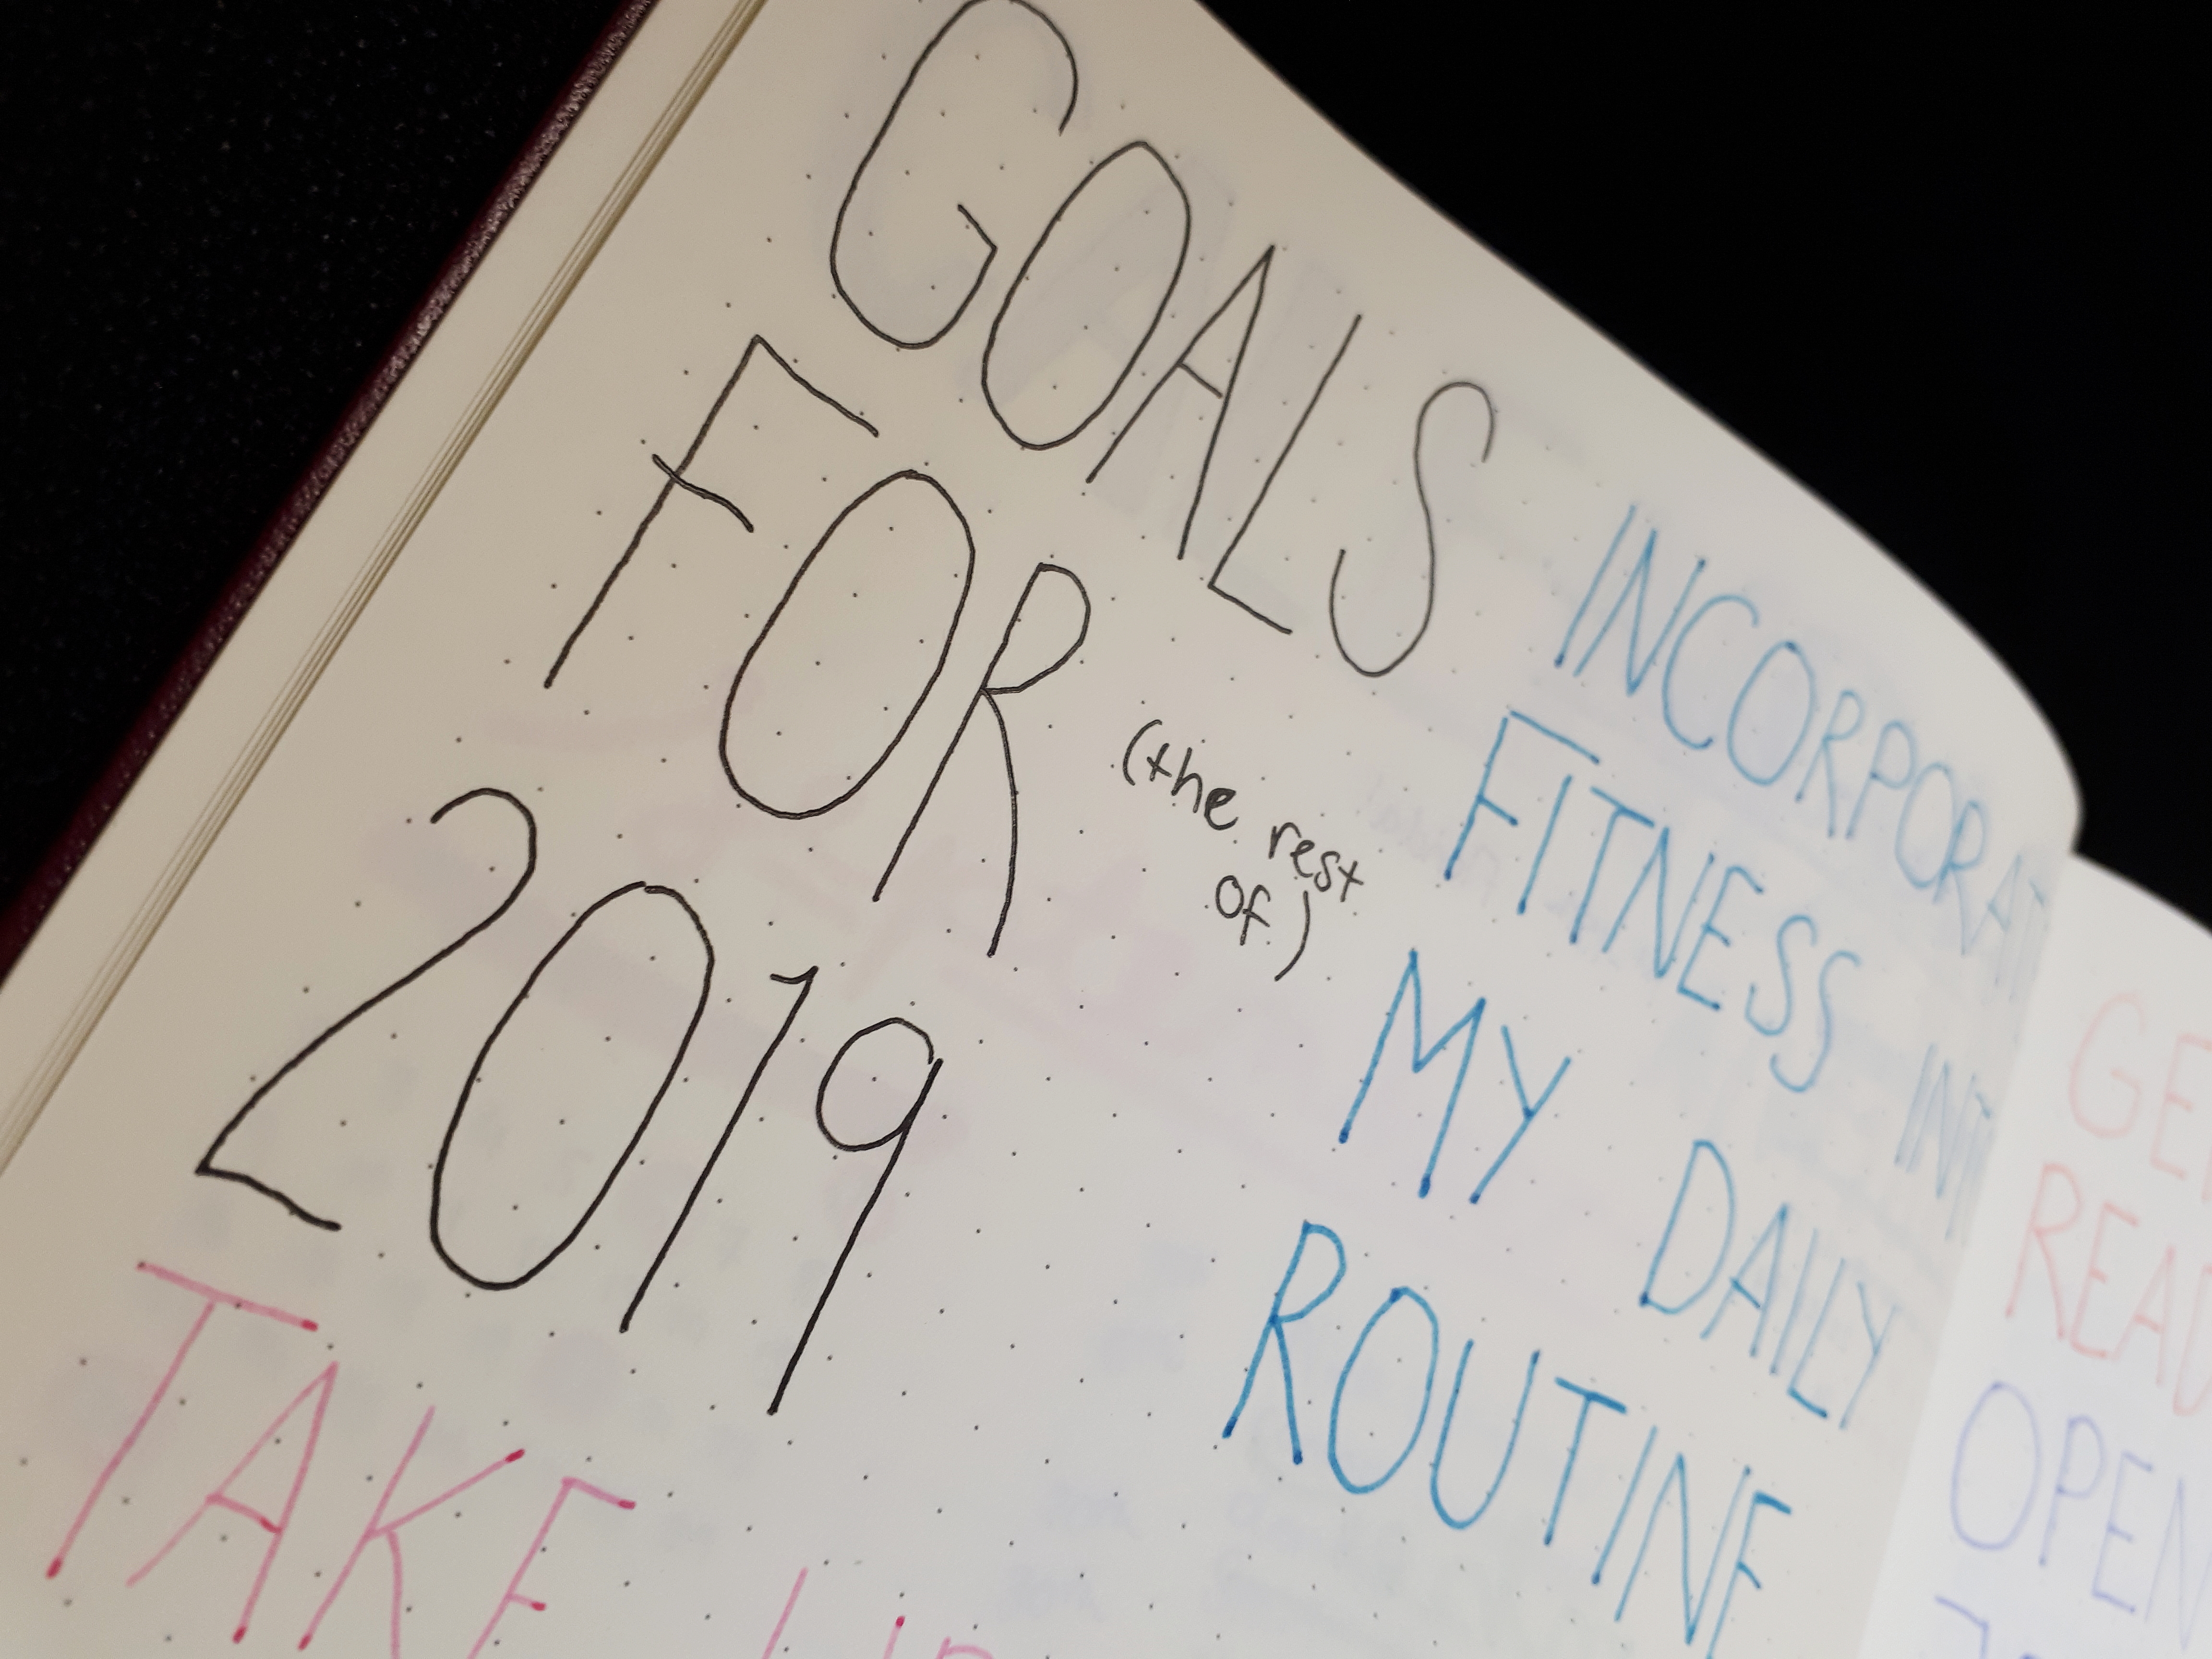 GOALS
FOR
(the rest
of)
2019
INCORPORAT
FITNESS INT
MY DAILY
ROUTINE
TAKE
GE
READ
OPEN